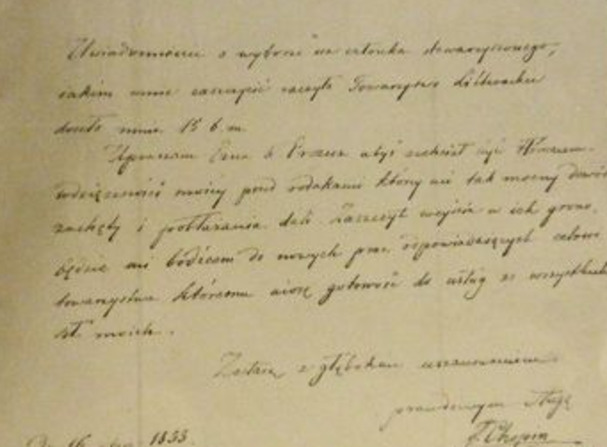 Uwiadomienie o wyborze na członka stowarzyszonego,
jakim mnie zaszczycić raczyło Towarzystwo Litterackie
doszło mnie 15 b. m.
Upraszam Pana Prezesa abyś zechciał być tłumaczem
wdzięczności mojej przed rodakami który mi tak mocny dowód
zachęty i pobłażania dali. Zaszczyt wejścia w ich grono,
będzie mi bodźcem do nowych prac odpowiadających celowi
towarzystwa któremu niosę gotowość do usług ze wszystkich
sił moich.
Zostaję z głębokim uszanowaniem
prawdziwym sługą
F. Chopin
16 1833.